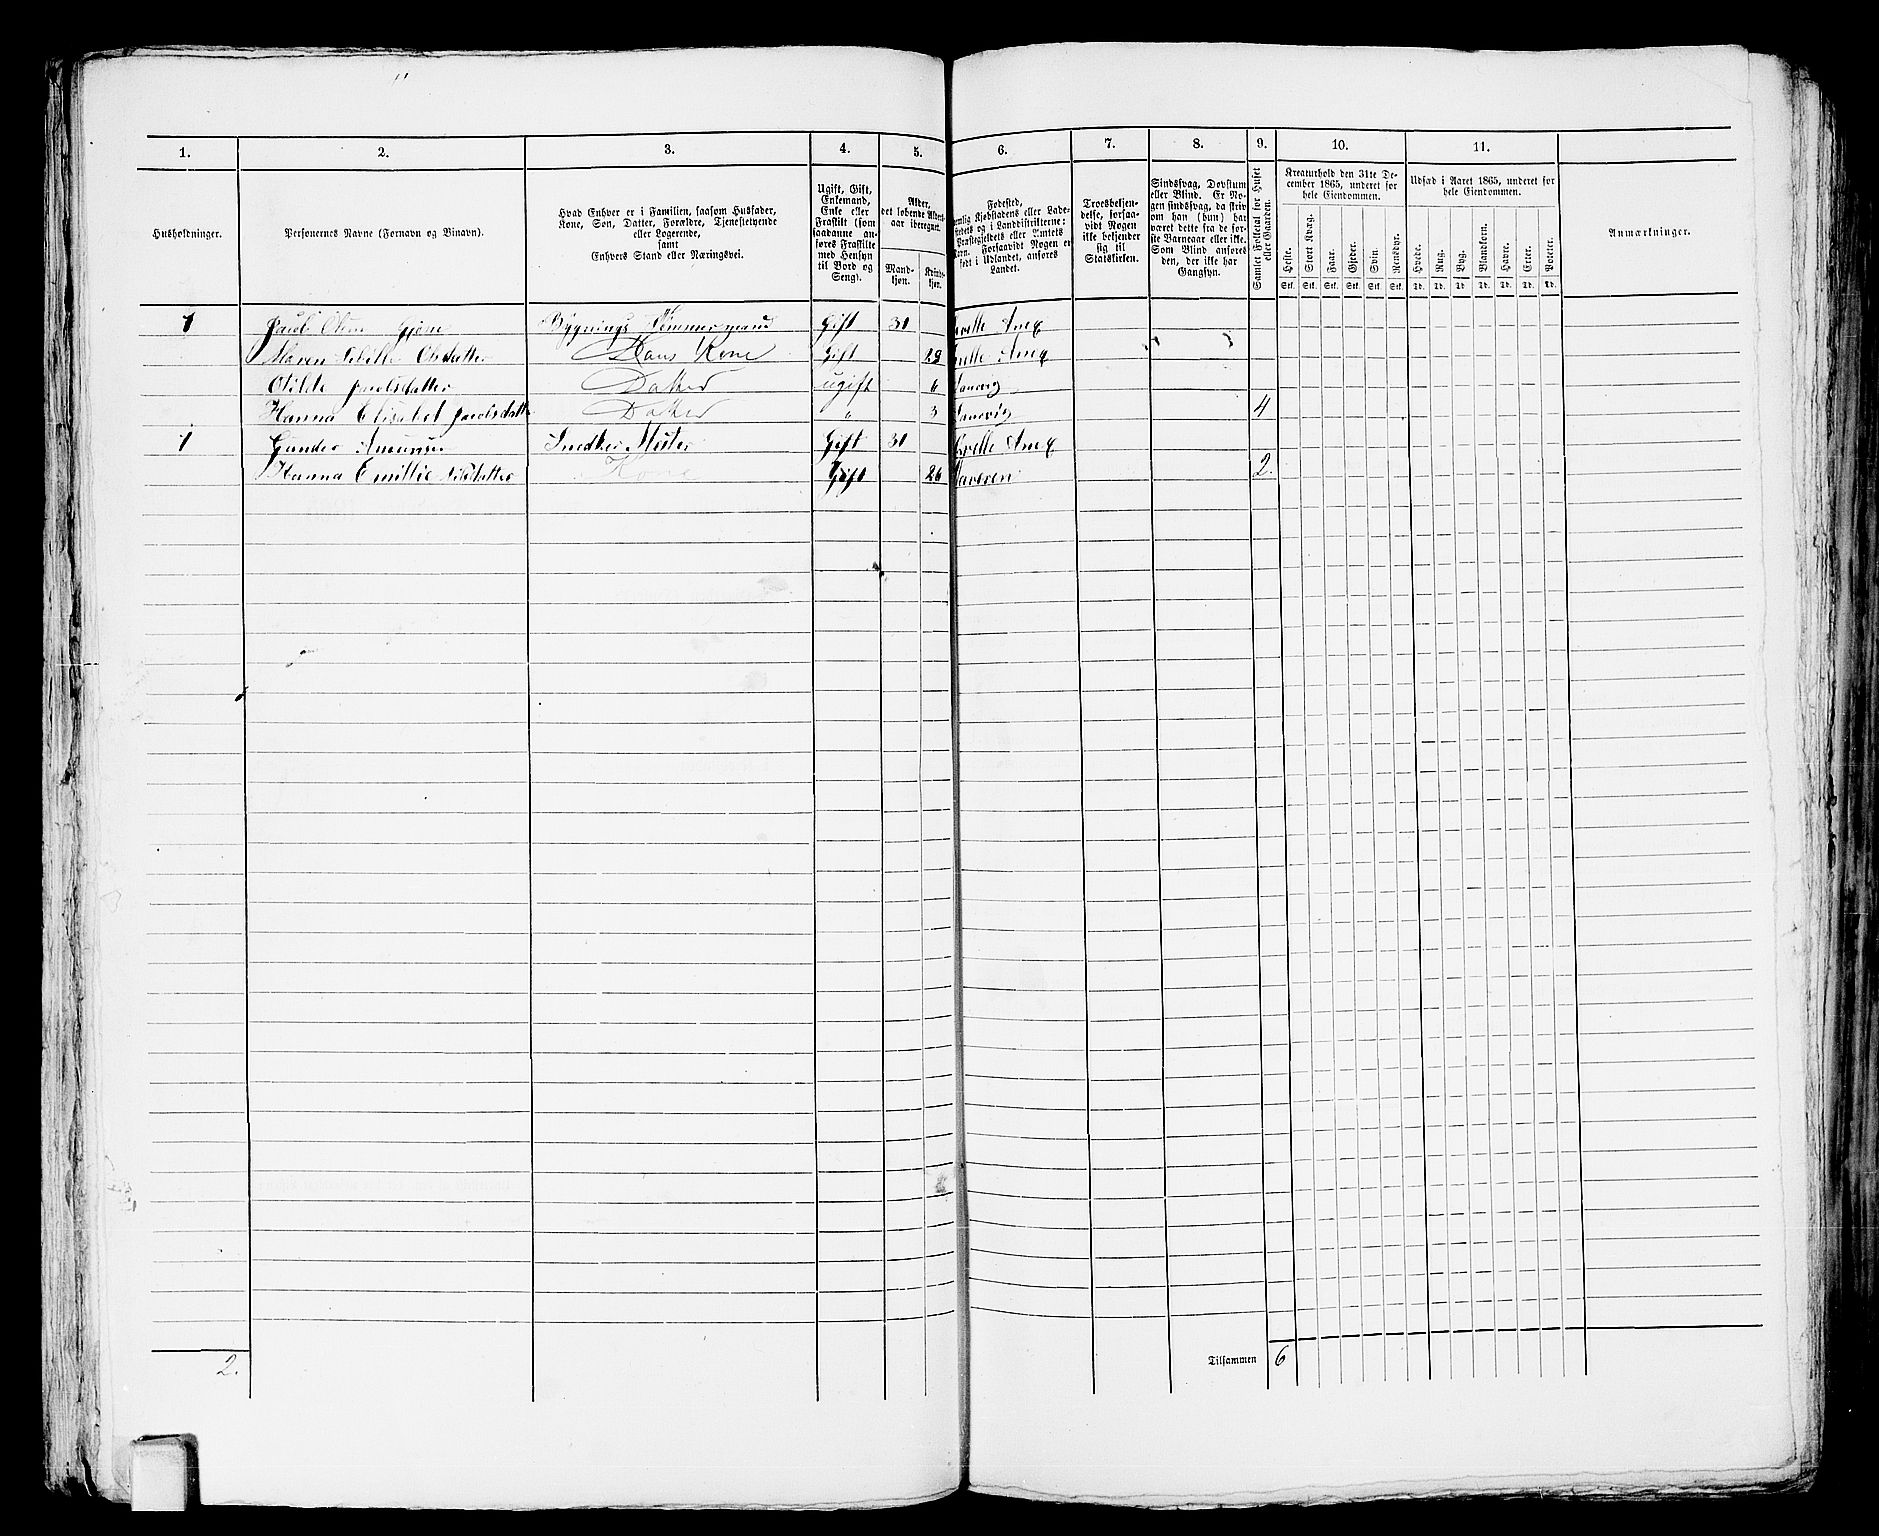 1. 2. 3. 4. 5. 6. 7. 8. 9. 10. 11.
Husholdninger.
Personernes Navne (Fornavn og Binavn).
Hvad Enhver er i Familien, saasom Husfader,
Kone, Søn, Datter, Forældre, Tjenestetyende
eller Logerende,
samt
Enhvers Stand eller Næringsvei.
Ugift, Gift,
Enkemand,
Enke eller
Fraskilt (som
saadanne an-
føres Fraskilte
med Hensyn
til Bord og
Seng).
Alder,
det løbende Alders-
aar iberegnet.
Mand-
kjøn.
Kvinde-
kjøn.
Fødested,
nemlig Kjøbstadens eller Lade-
stedets og i Landdistrikterne:
Præstegjeldets eller Amtets
Navn. Forsaavidt Nogen er
født i Udlandet, anføres
Landet.
Troesbekjen-
delse, forsaa-
vidt Nogen
ikke bekjender
sig til
Statskirken.
Sindssvag, Døvstum
eller Blind. Er No-
gen sindssvag, da skriv
om han (hun) har
været dette fra de før-
ste Barneaar eller ikke.
Som Blind anføres
den, der ikke har
Gangsyn.
Samlet Folketal for Huset
eller Gaarden.
Kreaturhold den 31te De-
cember 1865, underet for
hele Eiendommen.
Heste. Stort Kvæg. Faar. Gjeder. Svin. Rensdyr.
Stk. Stk. Stk. Stk. Stk. Stk.
Udsæd i Aaret 1865, underet for
hele Eiendommen.
Hvede. Rug. Byg. Blandkorn. Havre. Erter. Poteter.
Td. Td. Td. Td. Td. Td. Td.
Anmærkninger.
1 Jacob Olsen Bygnings Tømmermand Gift 31
Maren Olsdatter Hans Kone Gift 29
Otilde Jacobsdatter Datter ugift 6
Hanna Elisabet Jacobsdatter Datter " 3 4
1 Gunder Snedker Mester Gift 31
Hanna Emillie Nilsdatter Kone Gift 26 2
2.
Tilsammen 6